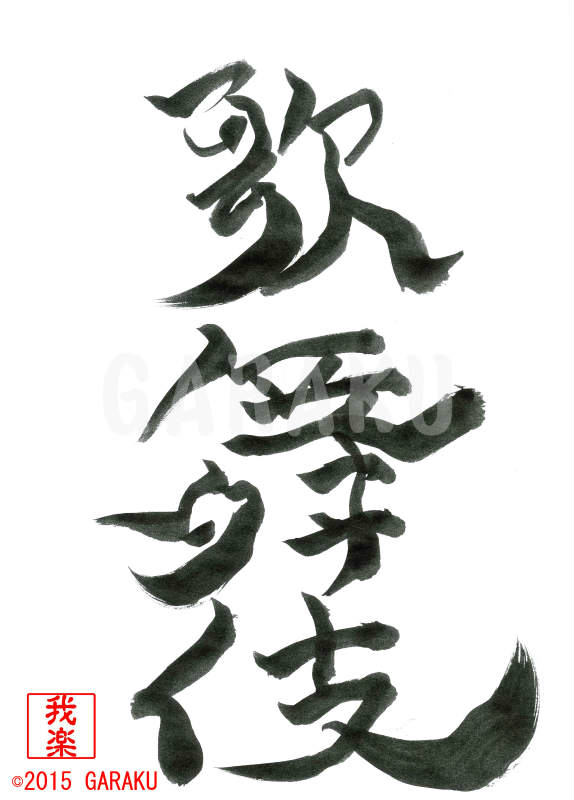 歌舞伎
GARAKU
我楽
©2015 GARAKU